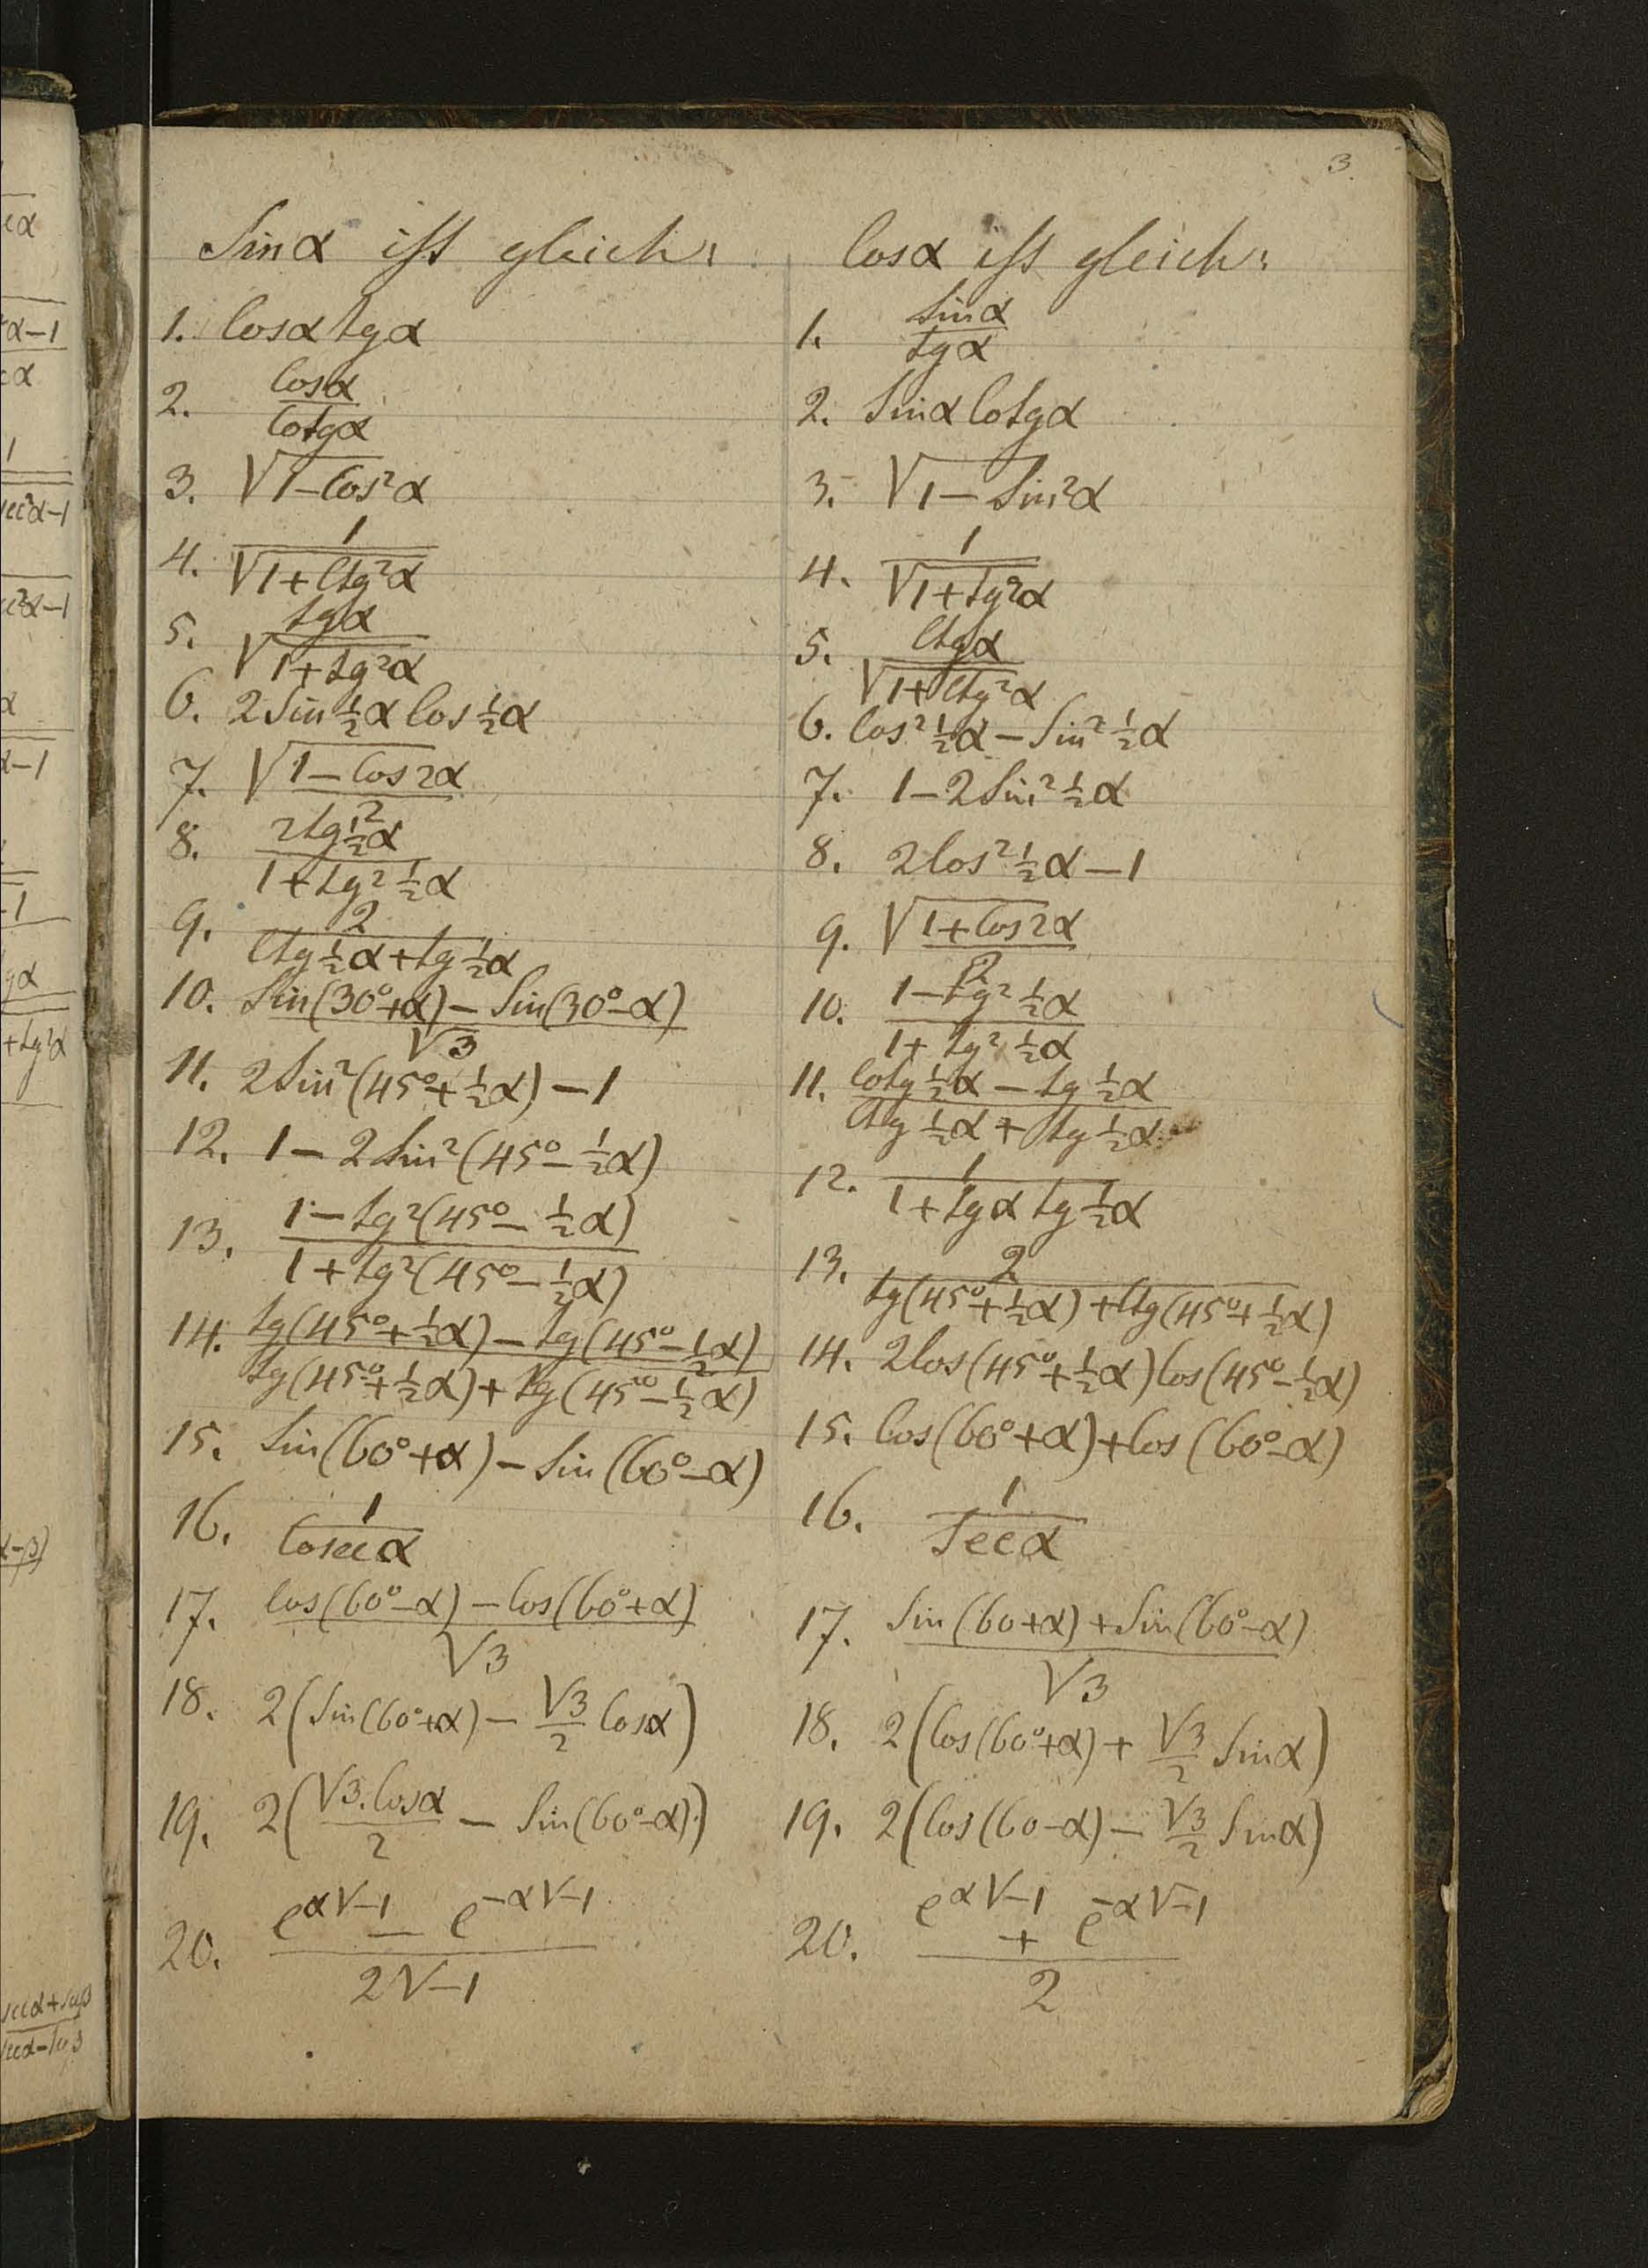 3.
Sinα ist gleich:
1. Cosα tgα
2. Cosα / Cotgα
3. √(1-Cos²α)
4. 1 / √(1+Ctg²α)
5. tgα / √(1+tg²α)
6. 2Sin½α Cos½α
7. √((1-Cos2α) / 2)
8. 2tg½α / (1+tg²½α)
9. 2 / (Ctg½α+tg½α)
10. (Sin(30°+α)-Sin(30°-α)) / √3
11. 2Sin²(45°+½α)-1
12. 1-2Sin²(45°-½α)
13. (1-tg²(45°-½α)) / (1+tg²(45°-½α))
14. (tg(45°+½α)-tg(45°-½α)) / (tg(45°+½α)+tg(45°-½α))
15. Sin(60°+α)-Sin(60°-α)
16. 1 / Cosecα
17. (Cos(60°-α)-Cos(60°+α)) / √3
18. 2(Sin(60°+α)-√3/2 Cosα)
19. 2(√3.Cosα/2 - Sin(60°-α))
20. (e^(α√-1) - e^(-α√-1)) / 2√-1
Cosα ist gleich:
1. Sinα / tgα
2. Sinα Cotgα
3. √(1-Sin²α)
4. 1 / √(1+tg²α)
5. Ctgα / √(1+Ctg²α)
6. Cos²½α-Sin²½α
7. 1-2Sin²½α
8. 2Cos²½α-1
9. √((1+Cos2α) / 2)
10. (1-tg²½α) / (1+tg²½α)
11. (Cotg½α-tg½α) / (Ctg½α+tg½α)
12. 1 / (1+tgα tg½α)
13. 2 / (tg(45°+½α)+Ctg(45°+½α))
14. 2Cos(45°+½α)Cos(45°-½α)
15. Cos(60°+α)+Cos(60°-α)
16. 1 / Secα
17. (Sin(60+α)+Sin(60°-α)) / √3
18. 2(Cos(60°+α)+√3/2 Sinα)
19. 2(Cos(60-α)-√3/2 Sinα)
20. (e^(α√-1) + e^(-α√-1)) / 2